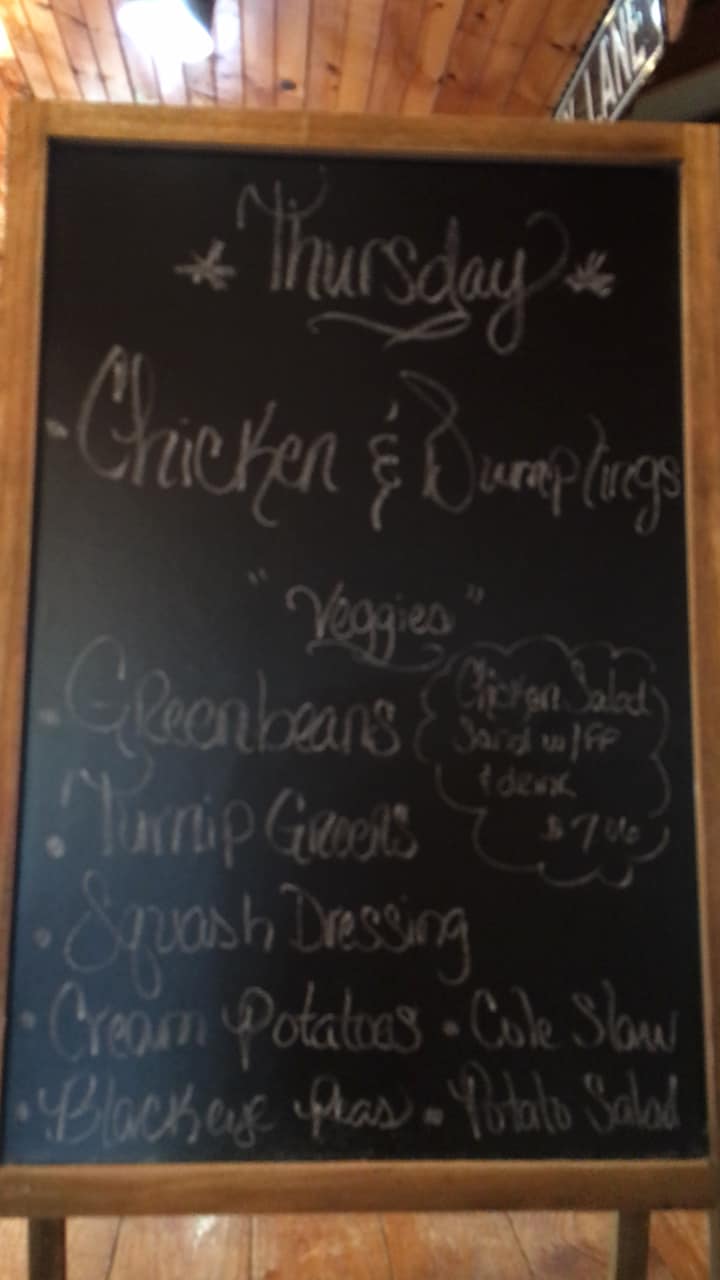 LANE
* Thursday *
• Chicken & Dumplings
"Veggies"
• Greenbeans
• Turnip Greens
• Squash Dressing
• Cream Potatoes • Cole Slaw
• Blackeye Peas • Potato Salad
Chicken Salad
Sand w/FF
& drink